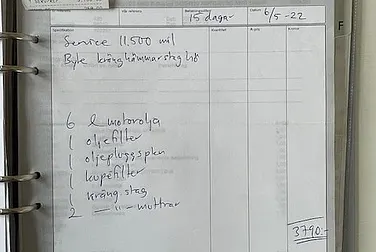 Vår referens
Betalningsvillkor
Datum
15 dagar
6/5-22
Specifikation
Kvantitet
À-pris
Kronor
Service 11.500 mil
Byte kränghämmarstag hö
F
6 l motorolja
1 oljefilter
1 oljepluggspkn
1 kupéfilter
1 kräng.stag
2 —"— muttrar
3790:-